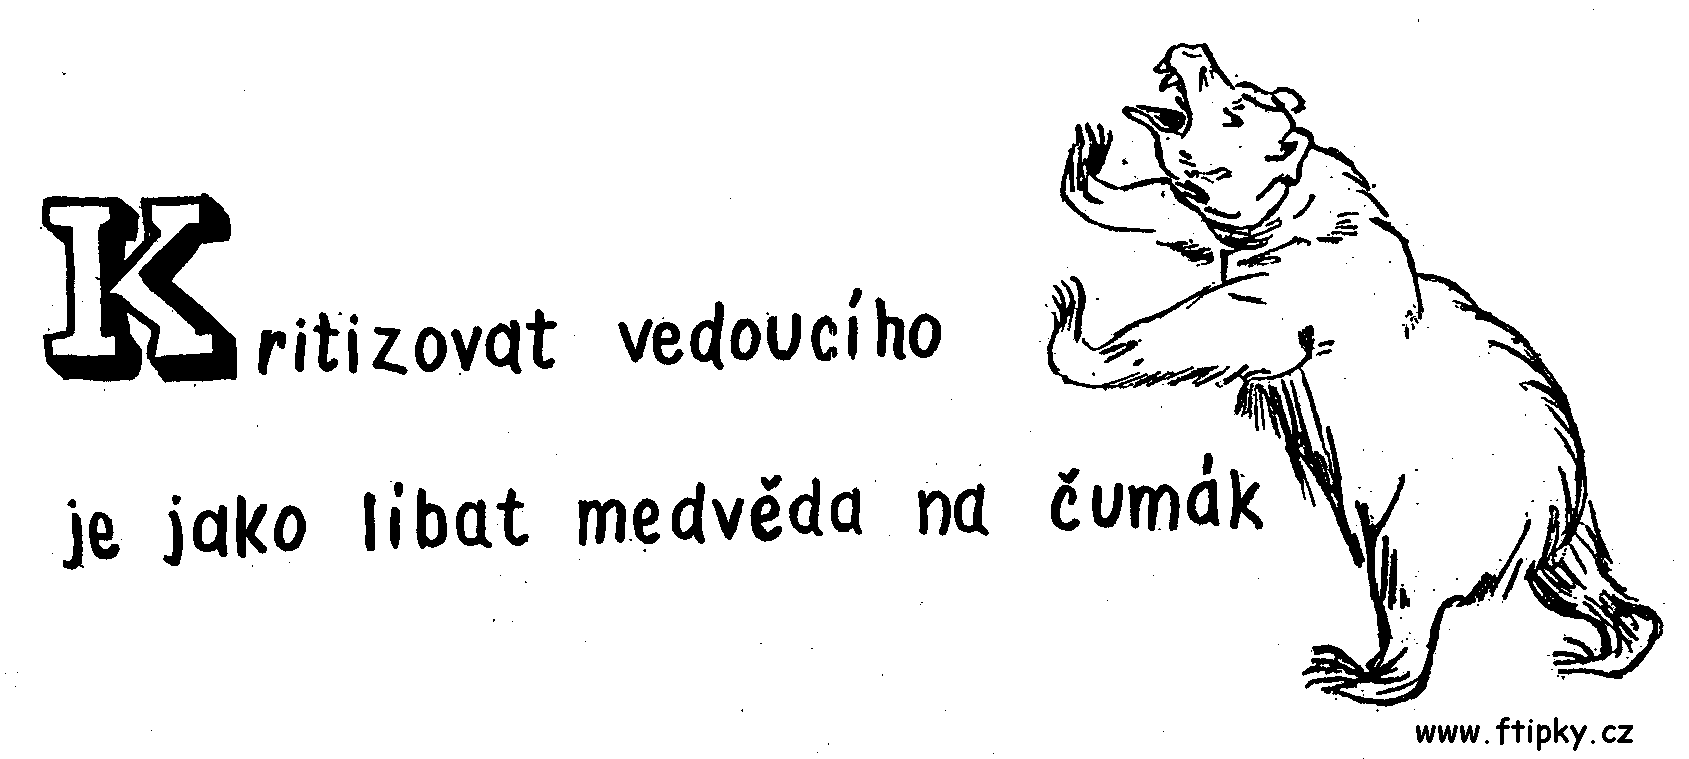 Kritizovat vedoucího
je jako líbat medvěda na čumák
www.ftipky.cz